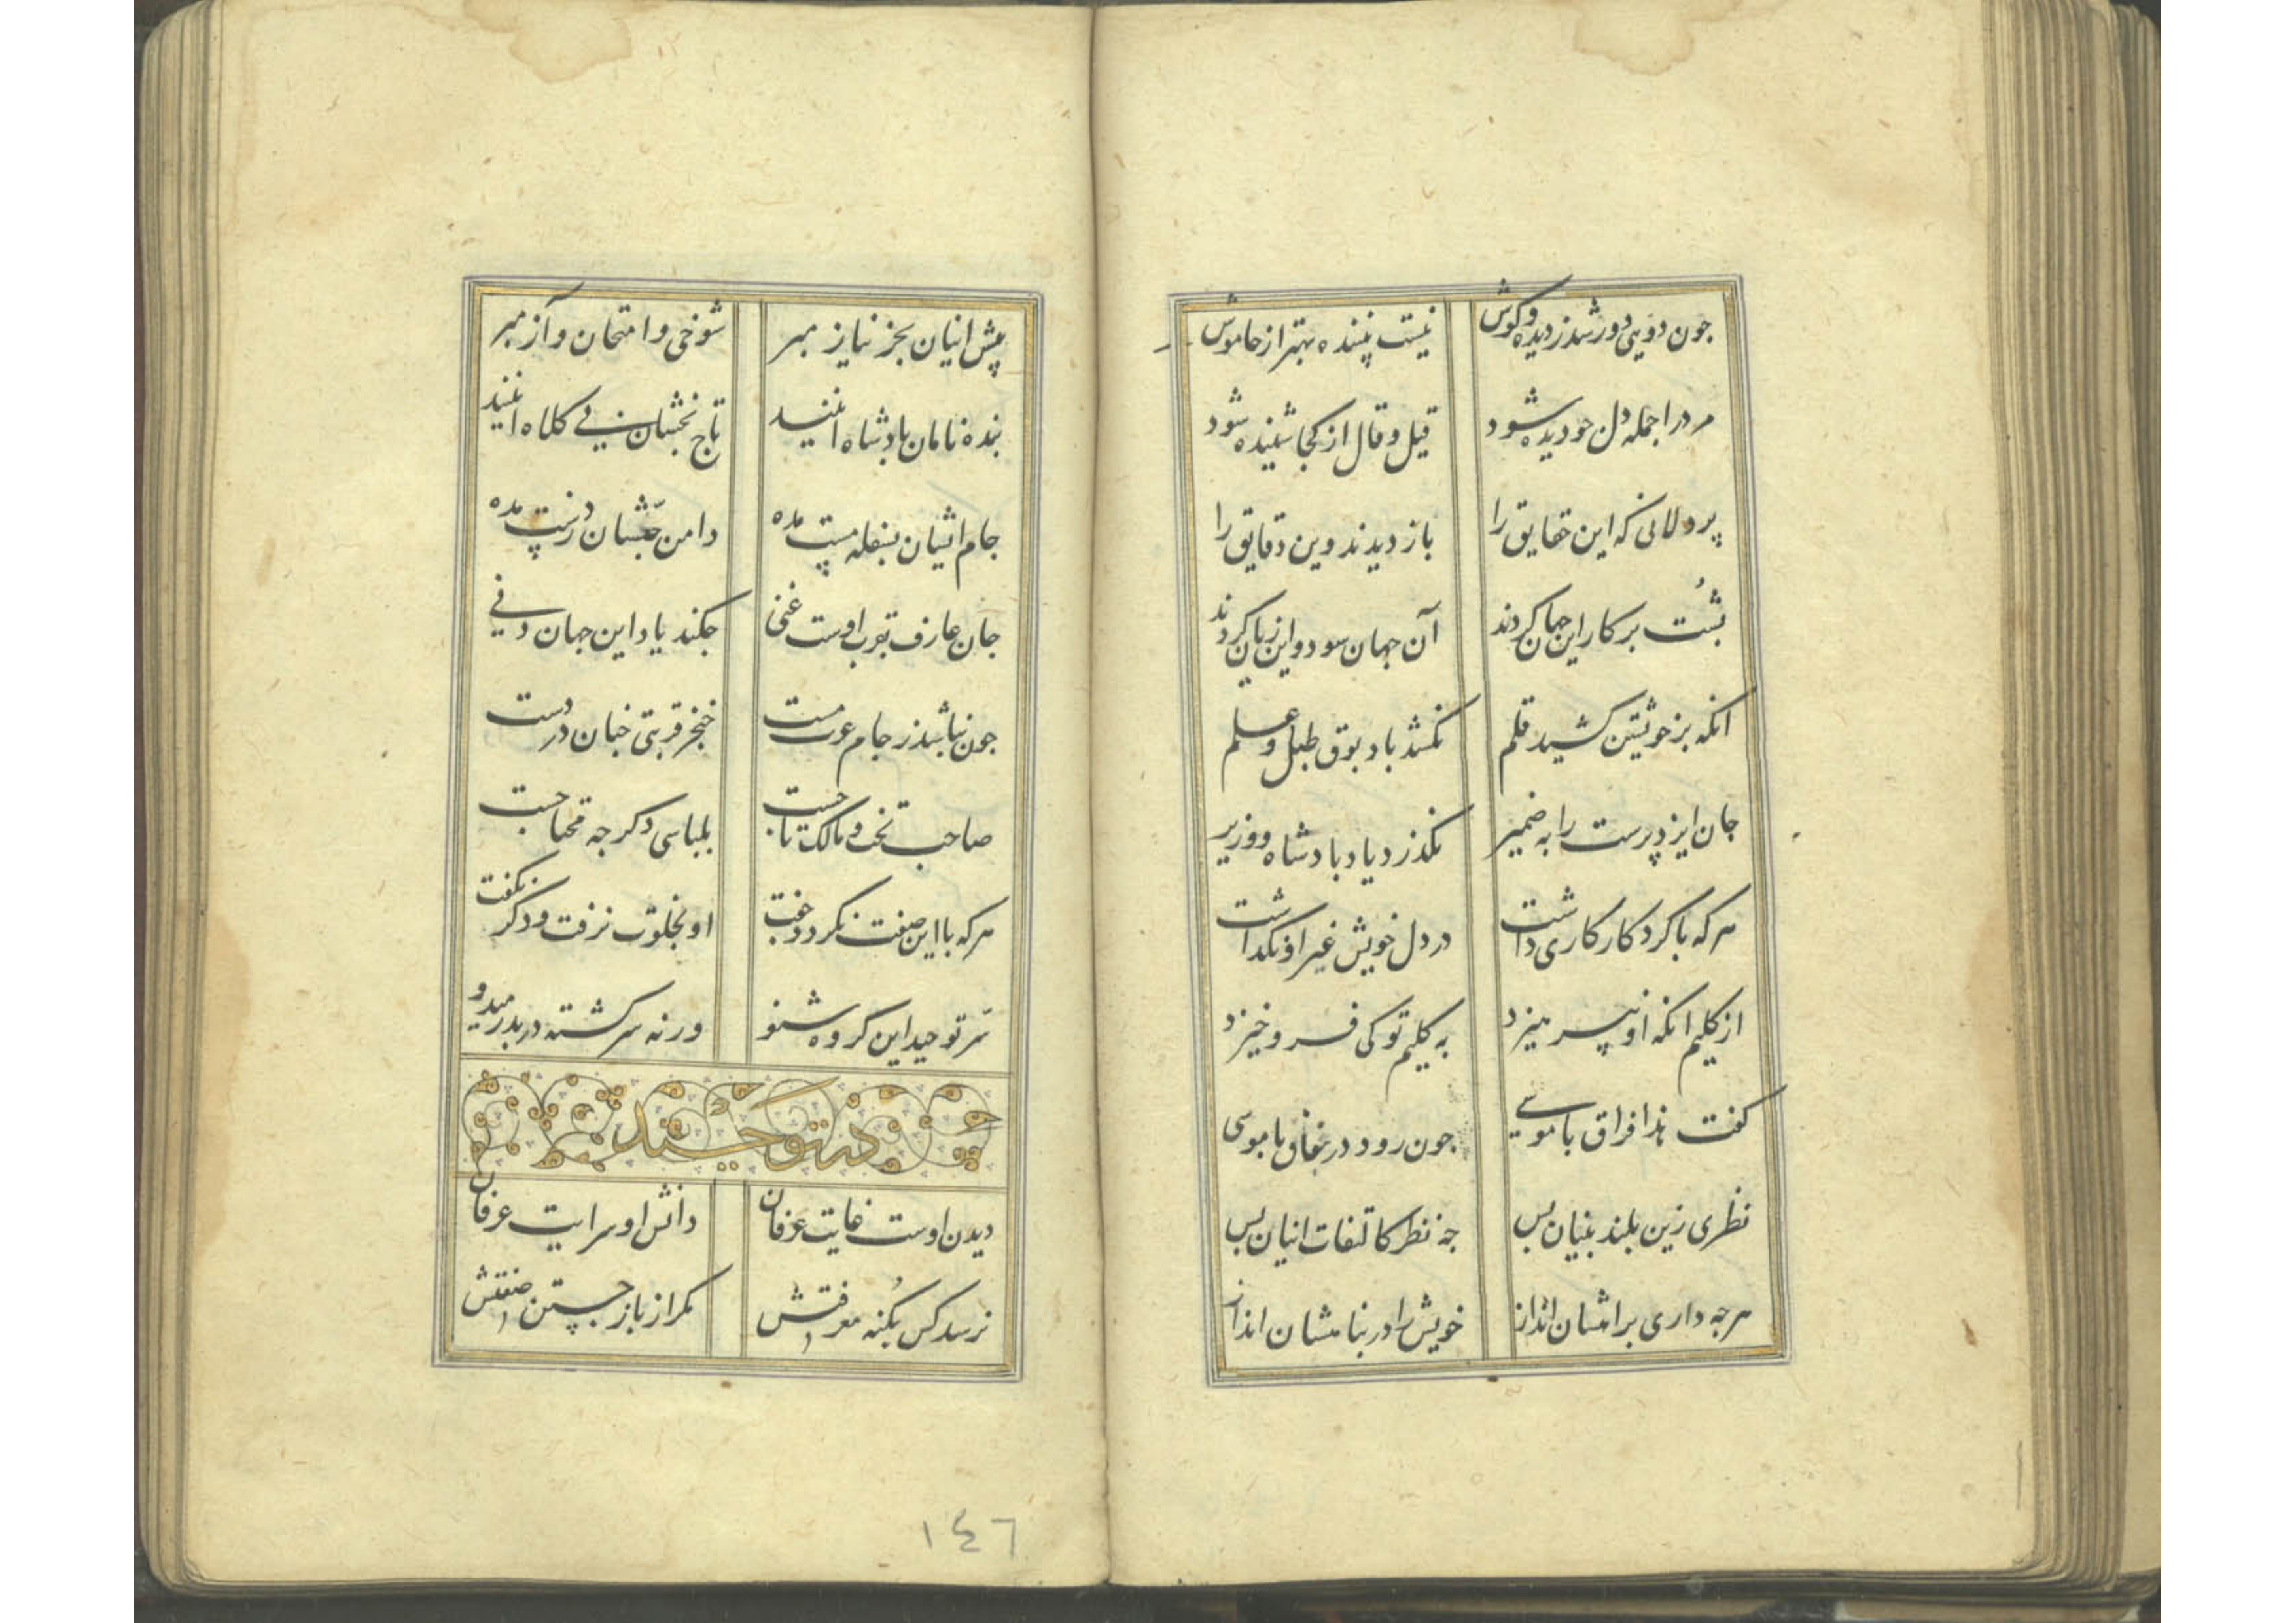 جون دویی دور شد ز دیده و کوش نیست بیننده بهتر از خاموش
مرد را جمله دل جو دیده شود قیل و قال از کجا شنیده شود
پر دلانی که این حقایق را باز دیدند وین دقایق را
پشت بر کار این جهان کردند آن جهان سود و این زیان کردند
انکه بر خویشتن کشید قلم نکشد باد بوق طبل و علم
جان ایزد پرست را به ضمیر نکذرد یاد بادشاه و وزیر
هر که با کردکار کاری داشت در دل خویش غیر او نکذاشت
از کلیم انکه او بپرهیزد به کلیم تو کی فرو خیزد
کفت هذا فراق با موسی جون رود در نفاق با موسی
نظری زین بلند بنیان بس جه نظر کالتفات اینان بس
هرجه داری برایشان انداز خویش را در پناهشان انداز
پیش اینان بجز نیاز مبر شوخی و امتحان و آز مبر
بنده نامان بادشاه اینند تاج بخشان بی کلاه اینند
جام ایشان بسفله پست مده دامن جمعشان ز دست مده
جان عارف بقرب اوست غنی جکند یاد این جهان دنی
جون نباشد ز جام عزت مست خنجر قربتی جنان در دست
صاحب تخت و مالک تاجست بلباسی دکر جه محتاجست
هر که با این صفت نکردد جفت او بخلوت نرفت و ذکر نکفت
سر توحید این کروه شنو ورنه سرکشته در بدر میدو
در توحید
دیدن اوست غایت عرفان دانش او سرایت عرفان
نرسد کس بکنه معرفتش مکر از باز جستن صفتش
١٤٦